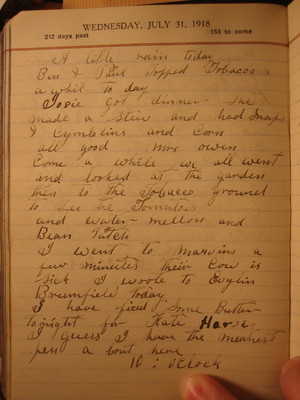 WEDNESDAY, JULY 31, 1918
212 days past 153 to come
A little rain today
Ben & Paul Topped Tobacco
a whil to day
Josie got dinner. She
made a Stew and had Snaps
& Cymblins and Corn
all good. Mrs Owen
Come a while we all went
and looked at the garden
then to the Tobacco ground
to See the Tomatoes
and water-mellon and
Bean Patch
I went to Marvins a
few minuites their Cow is
Sick I wrote to Evylin
Brumfield Today.
I have fied Some Butter
tonight for Kate
I Guess I have the meanest
pen a bout here
10:oclock